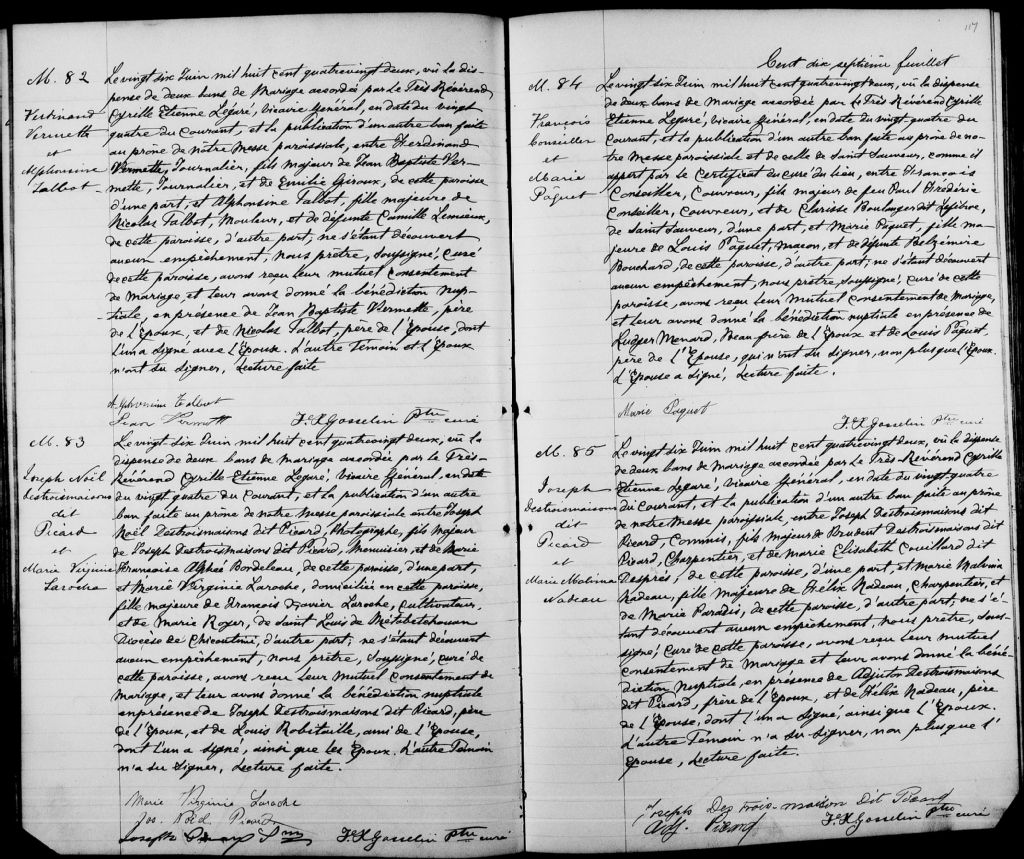 M. 82
Ferdinand
Vermette
et
Alphonsine
Talbot
Le vingt six Juin mil huit cent quatrevingt deux, vû la dis-
pense de deux bans de Mariage accordée par le Très Révérend
Cyrille Etienne Légaré, Vicaire Général, en date du vingt
quatre du Courant, et la publication d'un autre ban faite
au prône de notre Messe paroissiale, entre Ferdinand
Vermette, Journalier, fils majeur de Jean Baptiste Ver-
mette, Journalier, et de Emilie Giroux, de cette paroisse
d'une part, et Alphonsine Talbot, fille majeure de
Nicolas Talbot, Mouleur, et de défunte Camille Lemieux,
de cette paroisse, d'autre part, ne s'étant découvert
aucun empêchement, Nous prêtre, Soussigné, curé
de cette paroisse, avons reçu leur mutuel consentement
de Mariage, et leur avons donné la bénédiction nup-
tiale, en présence de Jean Baptiste Vermette, père
de l'Epoux, et de Nicolas Talbot, père de l'Epouse, dont
l'un a signé avec l'Epouse. L'autre Témoin et l'Epoux
n'ont su signer, Lecture faite
Alphonsine Talbot
Jean Vermett
F. X Gosselin Ptre curé
M. 83
Joseph Noël
Destroismaisons
dit
Picard
et
Marie Virginie
Laroche
Le vingt six Juin mil huit cent quatrevingt deux, vû la
dispense de deux bans de Mariage accordée par le Très-
Révérend Cyrille-Etienne Légaré, Vicaire Général, en date
du vingt quatre du Courant, et la publication d'un autre
ban faite au prône de notre Messe paroissiale entre Joseph
Noël Destroismaisons dit Picard, Photographe, fils majeur
de Joseph Destroismaisons dit Picard, Menuisier, et de Marie
Françoise Aphée Bordeleau, de cette paroisse, d'une part,
et Marie Virginie Laroche, domiciliée en cette paroisse,
fille majeure de François Xavier Laroche, Cultivateur,
et de Marie Royer, de Saint Louis de Métabetchouan
Diocèse de Chicoutimi, d'autre part; ne s'étant découvert
aucun empêchement, nous prêtre, Soussigné, curé de
cette paroisse, avons reçu leur mutuel consentement de
Mariage, et leur avons donné la bénédiction nuptiale
en présence de Joseph Destroismaisons dit Picard, père
de l'Epoux, et de Louis Robitaille, ami de l'Epouse,
dont l'un a signé, ainsi que les Epoux. L'autre Témoin
n'a su signer, Lecture faite.
Marie Virginie Laroche
Jos. Noël Picard
Joseph
F. X Gosselin Ptre curé
117
Cent dix septième feuillet
M. 84
François
Conseiller
et
Marie
Pâquet
Le vingt six Juin mil huit cent quatrevingt deux, vû la dispense
de deux bans de Mariage accordée par le Très Révérend Cyrille
Etienne Légaré, Vicaire Général, en date du vingt quatre du
Courant, et la publication d'un autre ban faite au prône de no-
tre Messe paroissiale et de celle de Saint Sauveur, comme il
appert par le Certificat du curé du lieu, entre François
Conseiller, Couvreur, fils majeur de feu Paul Frédéric
Conseiller, Couvreur, et de Clarisse Boulanger dit Lefebvre,
de Saint Sauveur, d'une part, et Marie Paquet, fille ma-
jeure de Louis Pâquet, Macon, et de défunte Belzémire
Bouchard, de cette paroisse, d'autre part; ne s'étant découvert
aucun empêchement, nous prêtre, Soussigné, curé de cette
paroisse, avons reçu leur Mutuel consentement de Mariage,
et leur avons donné la bénédiction nuptiale en présence de
Ludger Menard, Beau frère de l'Epoux et de Louis Pâquet,
père de l'Epouse, qui n'ont su signer, non plus que l'Epoux.
L'Epouse a signé, Lecture faite.
Marie Paquet
F. X Gosselin Ptre curé
M. 85
Joseph
Destroismaisons
dit
Picard
et
Marie Malvina
Nadeau
Le vingt six Juin mil huit cent quatrevingt deux, vû la dispense
de deux bans de Mariage accordée par Le Très Révérend Cyrille
Etienne Légaré, Vicaire Général, en date du vingt-quatre
du Courant, et la publication d'un autre ban faite au prône
de notre Messe paroissiale, entre Joseph Destroismaisons dit
Picard, Commis, fils majeur de Prudent Destroismaisons dit
Picard, Charpentier, et de Marie Elisabeth Couillard dit
Després, de cette paroisse, d'une part, et Marie Malvina
Nadeau, fille majeure de Félix Nadeau, Charpentier, et
de Marie Paradis, de cette paroisse, d'autre part, ne s'é-
tant découvert aucun empêchement, Nous prêtre, Sous-
signé, curé de cette paroisse, avons reçu leur mutuel
consentement de Mariage et leur avons donné la béné-
diction Nuptiale, en présence de Adjutor Destroismaisons
dit Picard, frère de l'Epoux, et de Félix Nadeau, père
de l'Epouse, dont l'un a signé, ainsi que l'Epoux.
L'autre Témoin n'a su signer, non plus que l'
Epouse, Lecture faite.
Joseph Des Trois-maison Dit Picard
Adj. Picard
F. X Gosselin Ptre curé